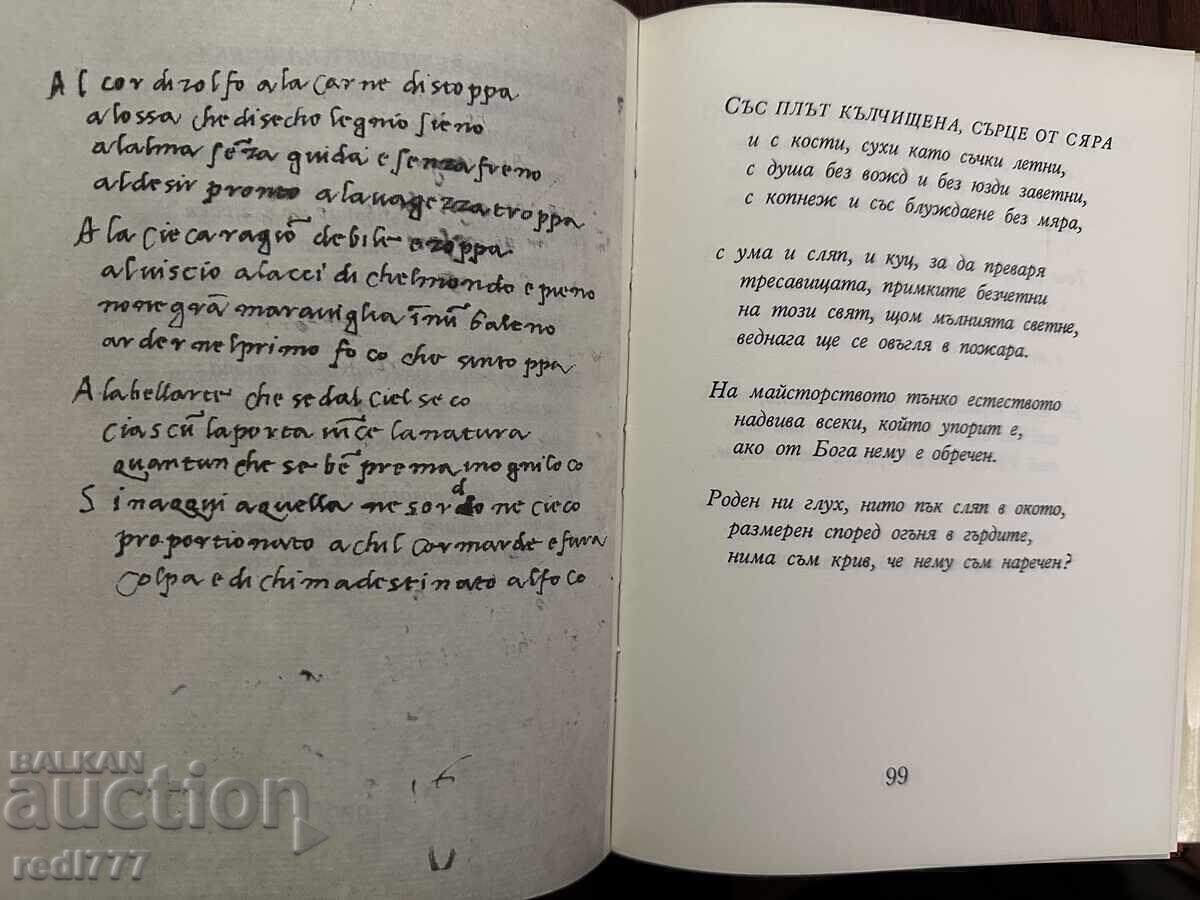 Al cor di zolfo a la carne di stoppa
a lossa che di secho legnio sieno
a lalma sēza guida e senza freno
al desir pronto a la uagezza troppa
A la cieca ragiō debile e zoppa
al uiscio a lacci di chel mondo e pieno
non e grā marauiglia ī nū baleno
arder nel primo foco che sintoppa
A la bellarte che se dal ciel seco
ciascū la porta uīce la natura
quantunche se bē prema inogni loco
S i nacqui a quella ne sordo ne cieco
d
proportionato a chil cor marde e fura
colpa e di chi ma destinato al foco
Със плът кълчищена, сърце от сяра
и с кости, сухи като съчки летни,
с душа без вожд и без юзди заветни,
с копнеж и със блуждаене без мяра,
с ума и сляп, и куц, за да преваря
тресавищата, примките безчетни
на този свят, щом мълнията светне,
веднага ще се овъгля в пожара.
На майсторството тънко естеството
надвива всеки, който упорит е,
ако от Бога нему е обречен.
Роден ни глух, нито пък сляп в окото,
размерен според огъня в гърдите,
нима съм крив, че нему съм наречен?
99
BALKAN
auction
redl777